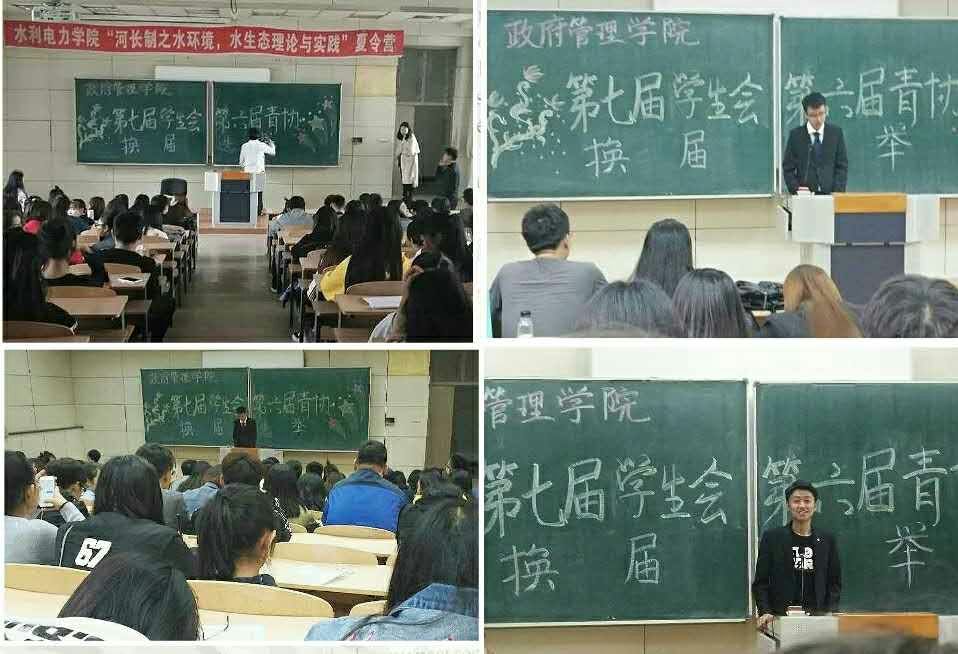 水利电力学院“河长制之水环境，水生态理论与实践”夏令营
政府管理学院
第七届学生会 第六届青协
换 届 选 举
政府管理学院
第七届学生会 第六届青协
换 届 举
政府管理学院
第七届学生会 第六届青协
换 届 举
67
管理学院
第七届学生会 第六届青
换 届 举